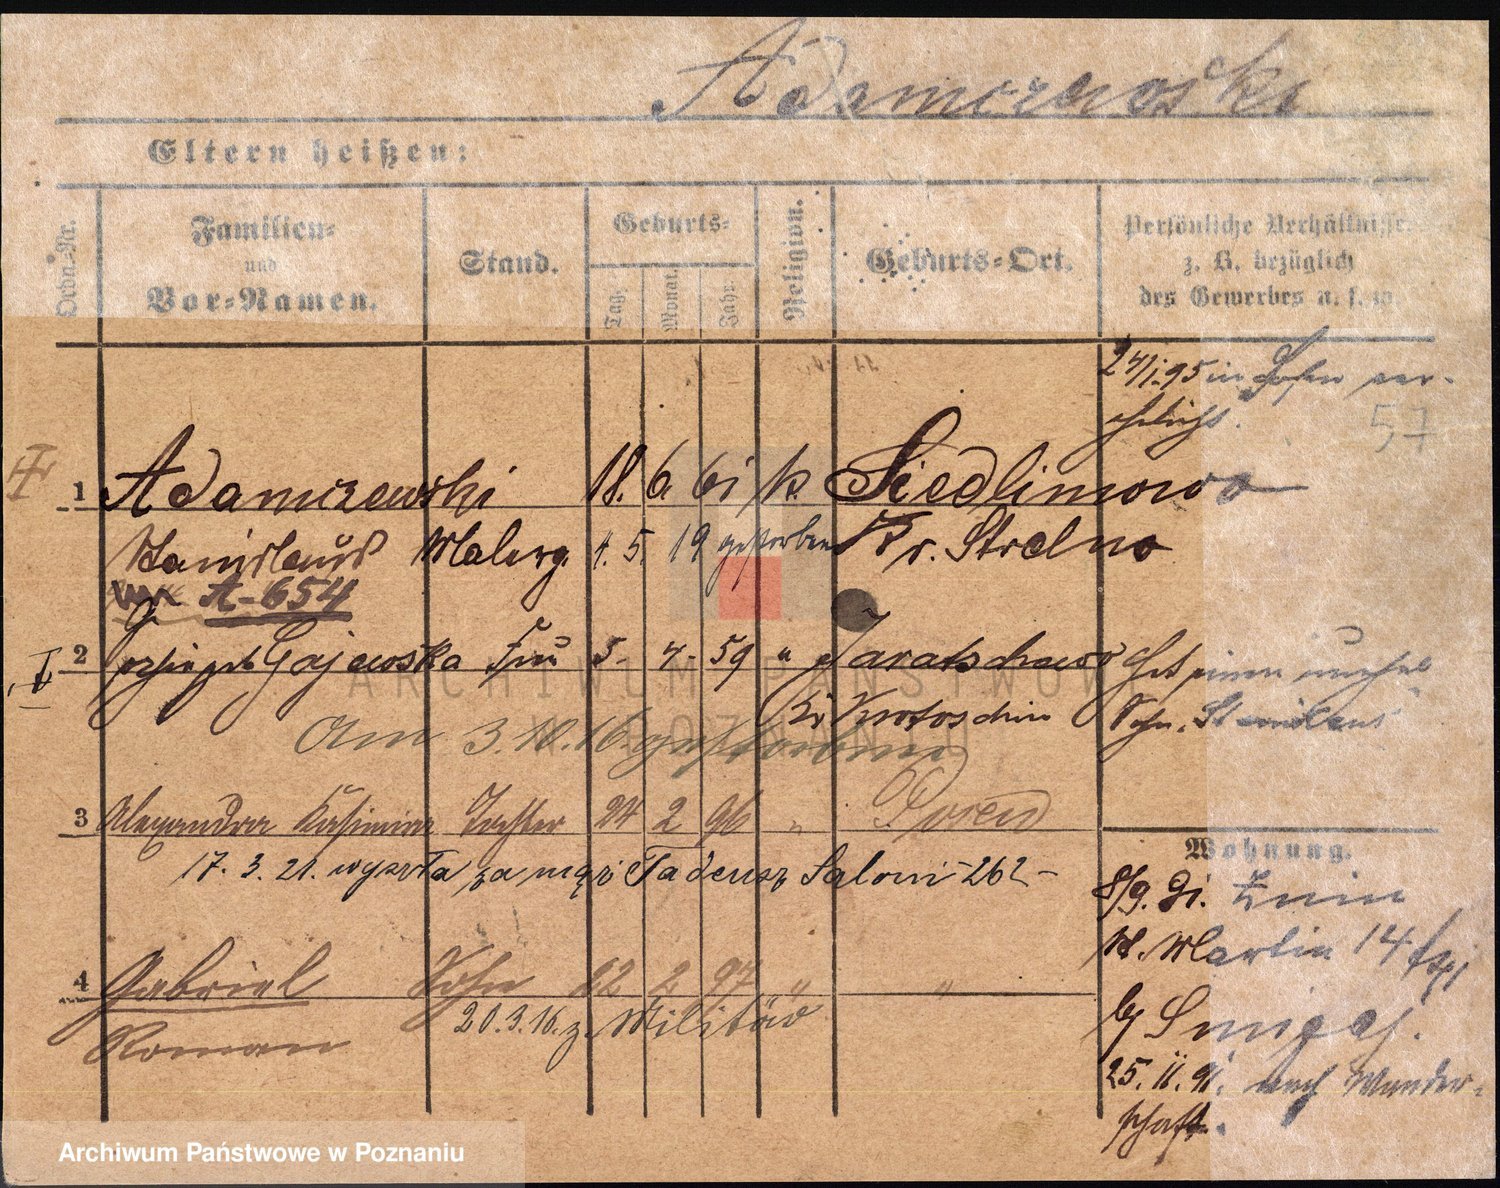 Adamczewski
Eltern heißen:
Ordn.-Nr.
Familien-
und
Vor-Namen.
Stand.
Geburts-
Tag.
Monat.
Jahr.
Religion.
Geburts-Ort.
Persönliche Verhältnisse,
z. B. bezüglich
des Gewerbes u. s. w.
24/1.95 in Posen ver-
ehelicht.
57
1 Adamczewski 18. 6 61 k. Siedlimowo
Stanislaus Malerg. 4. 5. 19 gestorben Kr. Strelno
A-654
2 geb Gajewska Frau 5. 4. 59 " Jaratschewo
Kr. Krotoschin
Hat einen unehel
Sohn, Stanislaus
Am 3.10.16. gestorben
3 Alexandra Kasimira Tochter 24 2 96 " Posen
17. 3. 21. wyszła za mąż Tadeusz Saloni 262
Wohnung.
8/9. 91. Znin
St. Martin 14
by Smigaj.
25. 11. 91. auf Wander-
schaft.
4 Gabriel Sohn 22 2 97 " "
Roman
20.3.16. z. Militär
ARCHIWUM PAŃSTWOWE
W POZNANIU
Archiwum Państwowe w Poznaniu